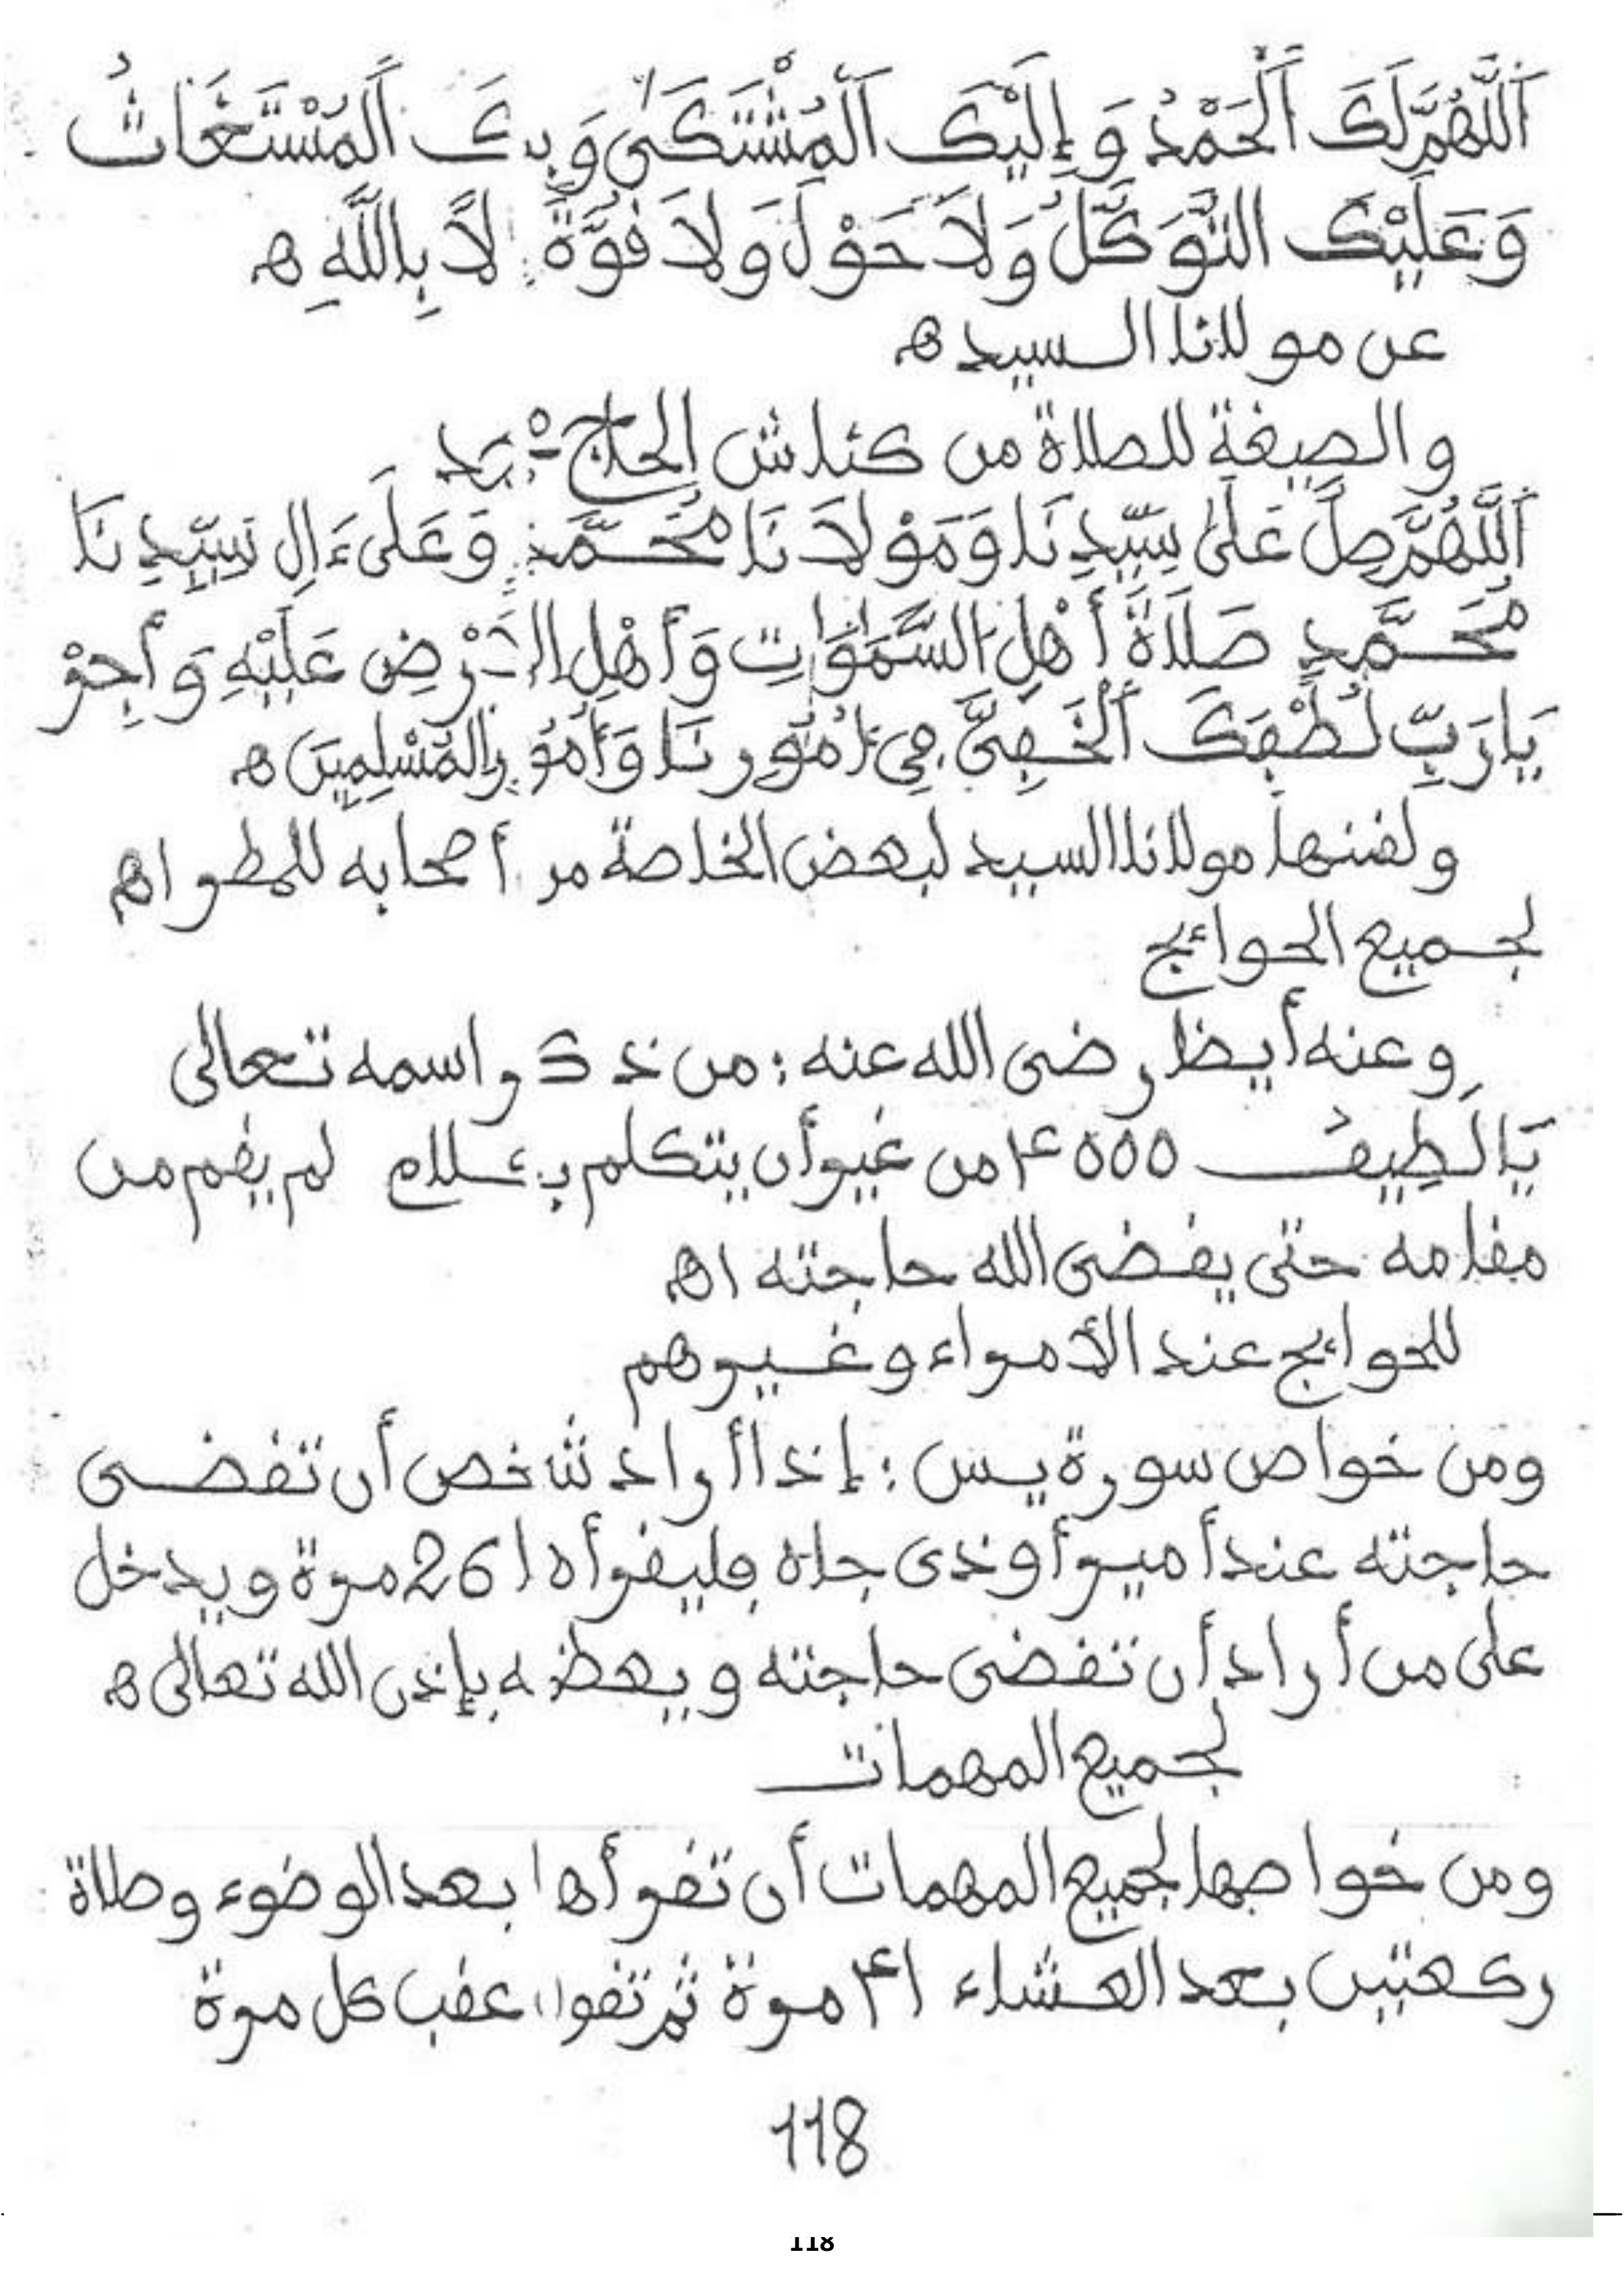 اَللَّهُمَّ لَكَ اَلْحَمْدُ وَإِلَيْكَ اَلْمُشْتَكَىٰ وَبِكَ اَلْمُسْتَغَاثُ
وَعَلَيْكَ التَّوَكُّلُ وَلَا حَوْلَ وَلَا قُوَّةَ إِلَّا بِاللَّهِ ه
عن مولانا السيد ه
والصيغة للصلاة من كناش الحاج
اَللَّهُمَّ صَلِّ عَلَىٰ سَيِّدِنَا وَمَوْلَانَا مُحَمَّدٍ وَعَلَىٰ ءَالِ سَيِّدِنَا
مُحَمَّدٍ صَلَاةَ أَهْلِ السَّمَٰوَاتِ وَأَهْلِ الأَرْضِ عَلَيْهِ وَأَجْرِ
يَا رَبِّ لُطْفَكَ اَلْخَفِيَّ فِي أُمُورِنَا وَأُمُورِ المُسْلِمِينَ ه
ولقنها مولانا السيد لبعض الخاصة من أصحابه للمطر اه
لجميع الحوائج
وعنه أيضا رضى الله عنه : من ذكر اسمه تعالى
يَا لَطِيفُ 4000 من غير أن يتكلم بكلام لم يقم من
مقامه حتى يقضى الله حاجته اه
للحوائج عند الأمراء وغيرهم
ومن خواص سورة يس : إذا أراد شخص أن تقضى
حاجته عند أمير أو ذى جاه فليقرأها 26 مرة ويدخل
على من أراد أن تقضى حاجته ويعظمه بإذن الله تعالى ه
لجميع المهمات
ومن خواصها لجميع المهمات أن تقرأها بعد الوضوء وصلاة
ركعتين بعد العشاء 41 مرة ثم تقرأ عقب كل مرة
118
118